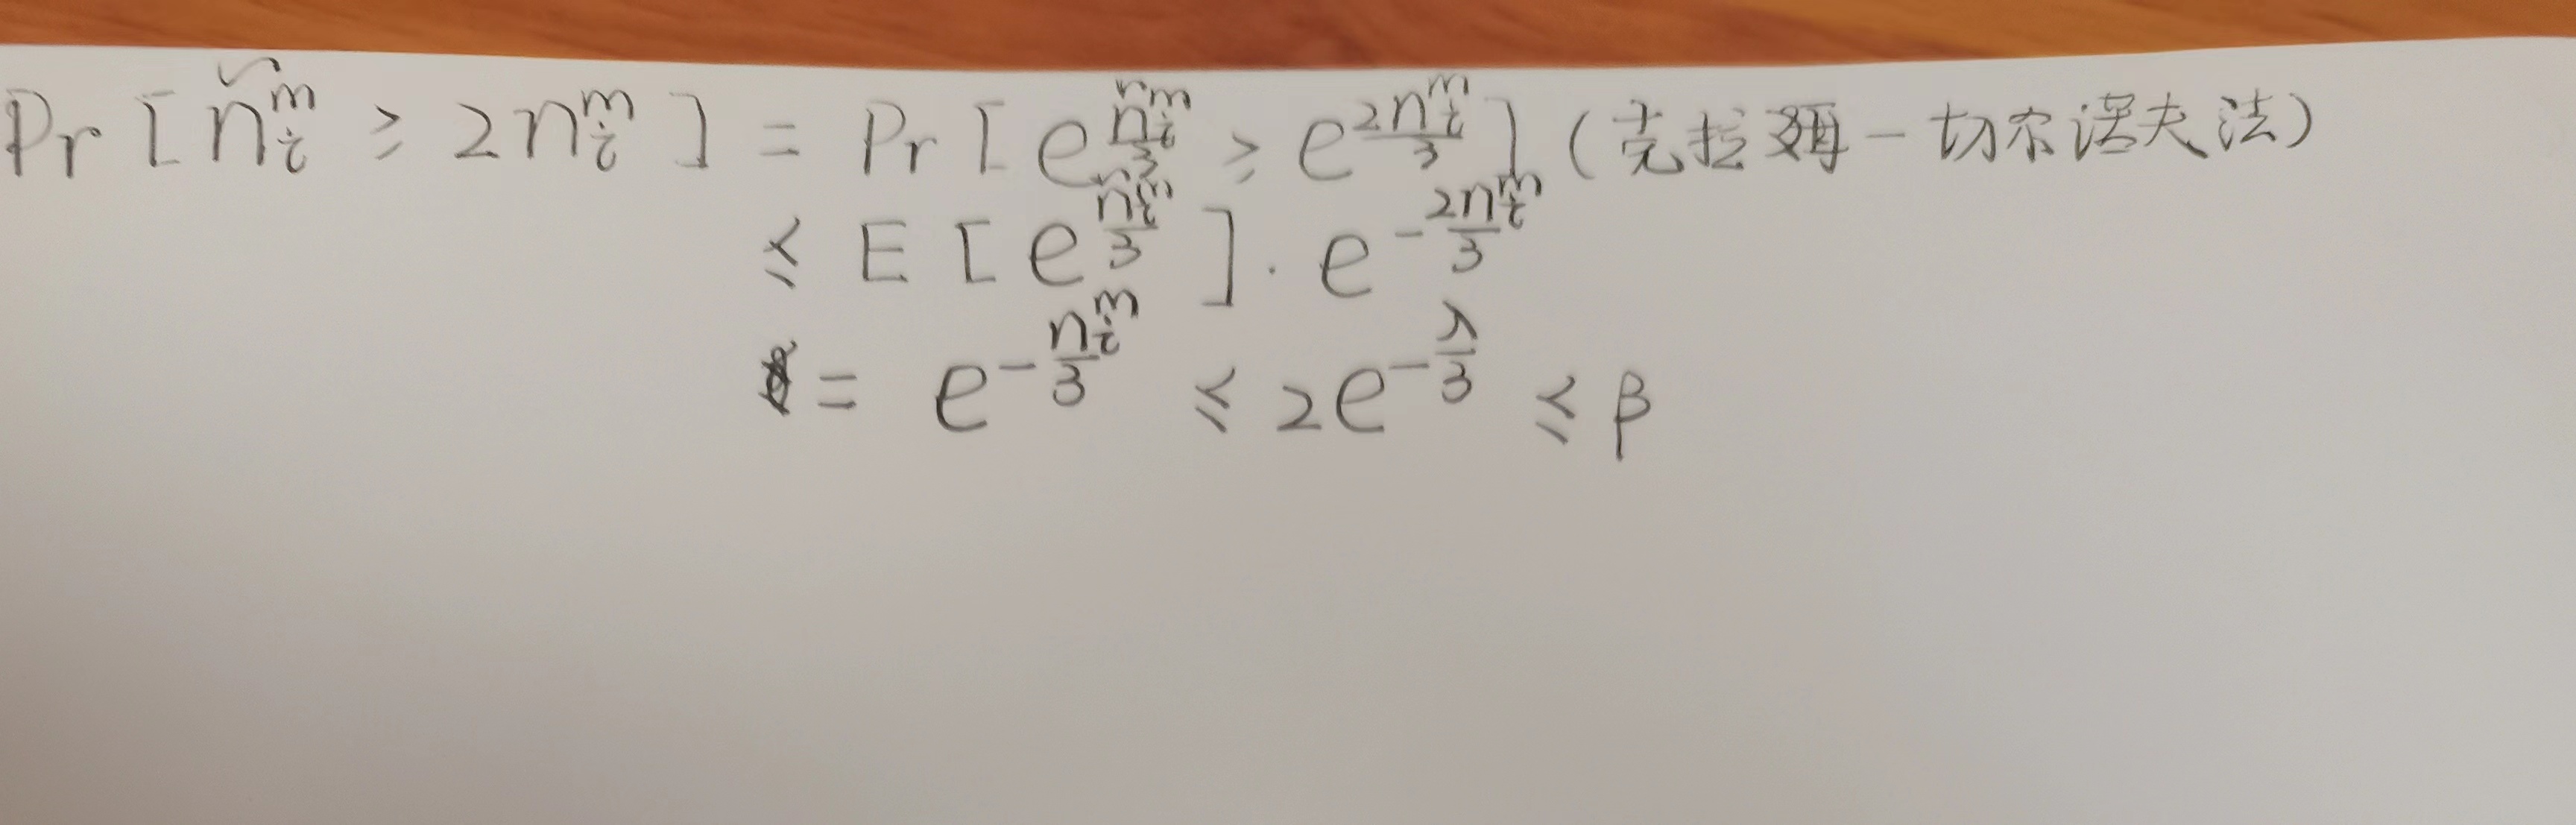 Pr[ñᵢᵐ ≥ 2nᵢᵐ] = Pr[e^(ñᵢᵐ/3) ≥ e^(2nᵢᵐ/3)] (克拉姆-切尔诺夫法)
≤ E[e^(ñᵢᵐ/3)]·e^(-2nᵢᵐ/3)
= e^(-nᵢᵐ/3) ≤ 2e^(-λ/3) ≤ β